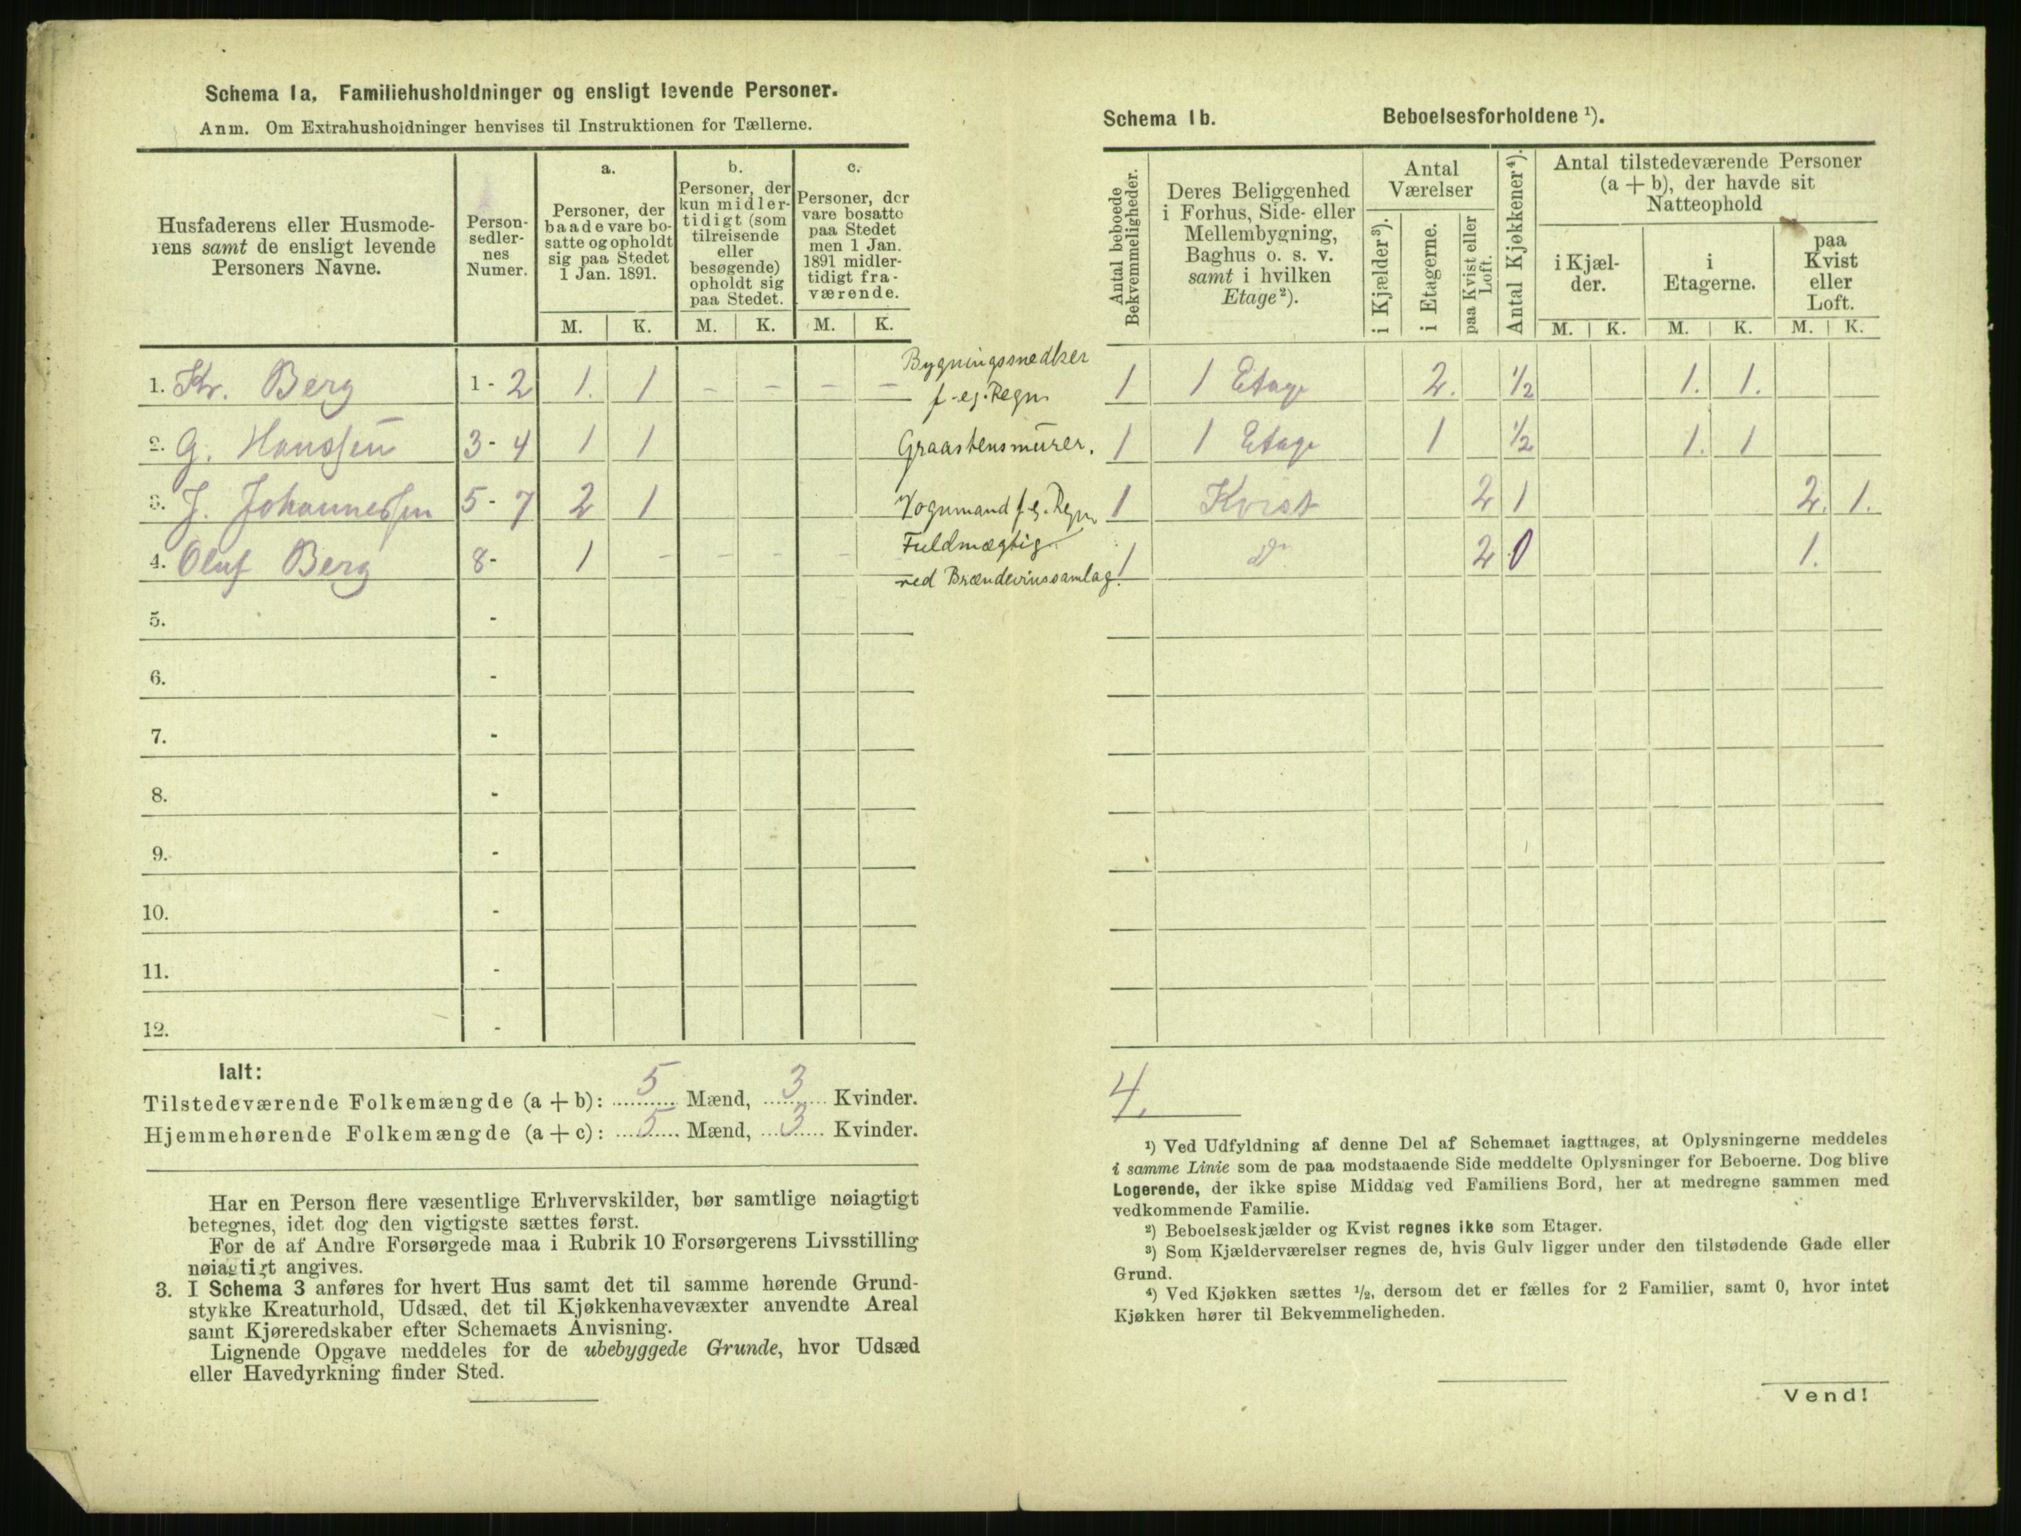 Schema 1a. Familiehusholdninger og ensligt levende Personer.
Anm. Om Extrahusholdninger henvises til Instruktionen for Tællerne.
Husfaderens eller Husmoderens samt de ensligt levende Personers Navne.
Personsedlernes Numer.
a.
Personer, der baade vare bosatte og opholdt sig paa Stedet 1 Jan. 1891.
b.
Personer, der kun midlertidigt (som tilreisende eller besøgende) opholdt sig paa Stedet.
c.
Personer, der vare bosatte paa Stedet men 1 Jan. 1891 midlertidigt fraværende.
M. K. M. K. M. K.
1. Kr. Berg 1 - 2 1. 1 - - - - Bygningssnedker f. eg. Regn.
2. G. Hanssen 3 - 4 1 1 Graastensmurer.
3. J. Johannessen 5 - 7 2 1 Vognmand f. eg. Regn
4. Oluf Berg 8 - 1 - - - - Fuldmægtig ved Brændevinssamlag.
5. -
6. -
7. -
8. -
9. -
10. -
11. -
12. -
Ialt:
Tilstedeværende Folkemængde (a + b): 5 Mænd, 3 Kvinder.
Hjemmehørende Folkemængde (a + c): 5 Mænd, 3 Kvinder.
Har en Person flere væsentlige Erhvervskilder, bør samtlige nøiagtigt
betegnes, idet dog den vigtigste sættes først.
For de af Andre Forsørgede maa i Rubrik 10 Forsørgerens Livsstilling
nøiagtigt angives.
3. I Schema 3 anføres for hvert Hus samt det til samme hørende Grund-
stykke Kreaturhold, Udsæd, det til Kjøkkenhavevæxter anvendte Areal
samt Kjøreredskaber efter Schemaets Anvisning.
Lignende Opgave meddeles for de ubebyggede Grunde, hvor Udsæd
eller Havedyrkning finder Sted.
Schema 1b. Beboelsesforholdene ¹).
Antal beboede Bekvemmeligheder.
Deres Beliggenhed i Forhus, Side- eller Mellembygning, Baghus o. s. v. samt i hvilken Etage²).
Antal Værelser
i Kjælder³).
i Etagerne.
paa Kvist eller Loft.
Antal Kjøkkener⁴).
Antal tilstedeværende Personer (a + b), der havde sit Natteophold
i Kjælder.
i Etagerne.
paa Kvist eller Loft.
M. K. M. K. M. K.
1 1 Etage 2. 1/2 1. 1.
1 1 Etage 1 1/2 1. 1
1 Kvist 2 1 2. 1.
1 Do 2 0 1.
4.
¹) Ved Udfyldning af denne Del af Schemaet iagttages, at Oplysningerne meddeles
i samme Linie som de paa modstaaende Side meddelte Oplysninger for Beboerne. Dog blive
Logerende, der ikke spise Middag ved Familiens Bord, her at medregne sammen med
vedkommende Familie.
²) Beboelseskjælder og Kvist regnes ikke som Etager.
³) Som Kjælderværelser regnes de, hvis Gulv ligger under den tilstødende Gade eller
Grund.
⁴) Ved Kjøkken sættes ½, dersom det er fælles for 2 Familier, samt 0, hvor intet
Kjøkken hører til Bekvemmeligheden.
Vend!